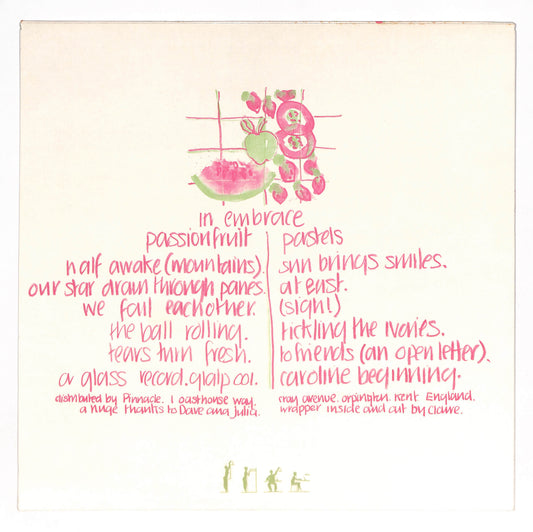 in embrace
passionfruit
half awake (mountains).
our star drawn through panes.
we fail each other.
the ball rolling.
tears turn fresh.
a glass record. glalp 001.
distributed by Pinnacle. 1 oasthouse way.
a huge thanks to Dave and Julia.
pastels
sun brings smiles.
at east.
(sigh!)
tickling the ivories.
to friends (an open letter).
caroline beginning.
cray avenue. orpington. Kent England.
wrapper inside and out by Claire.